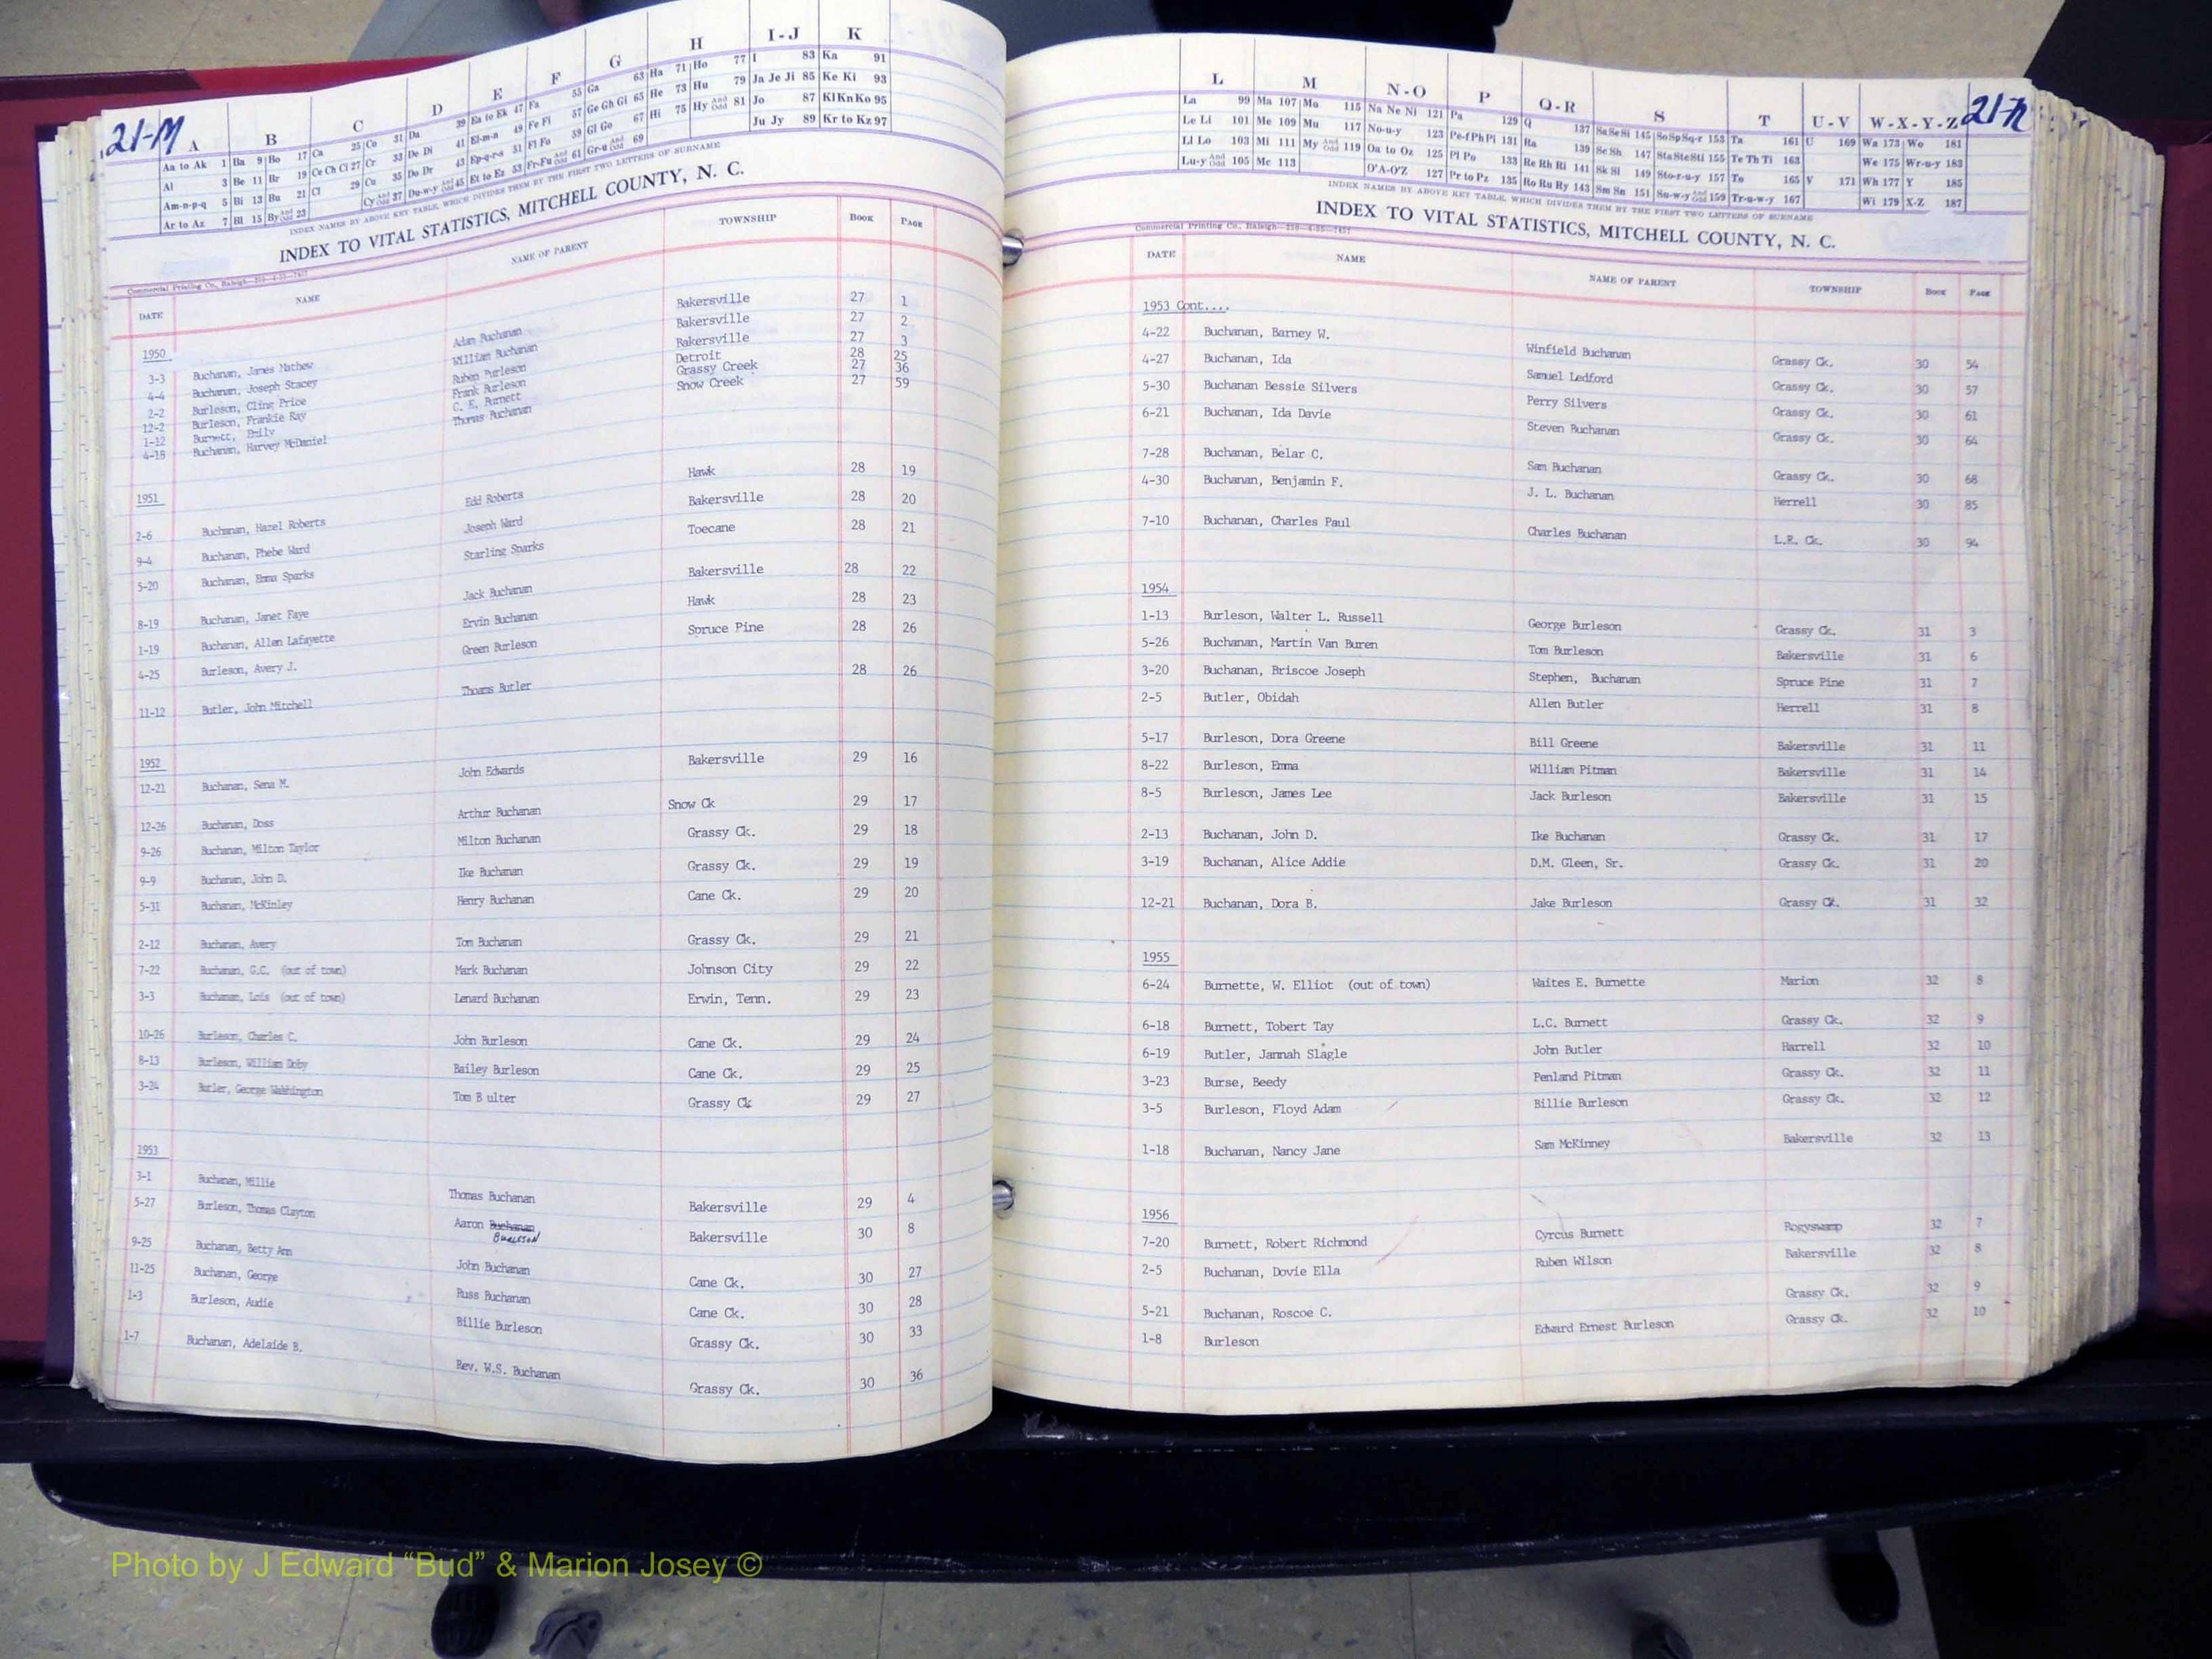 21-M
A B C D E F G H I-J K
Aa to Ak 1 Ba 9 Bo 17 Ca 25 Co 31 Da 39 Ea to Ek 47 Fa 55 Ga 63 Ha 71 Ho 77 I 83 Ka 91
Al 3 Be 11 Br 19 Ce Ch Ci 27 Cr 33 De Di 41 El-m-n 49 Fe Fi 57 Ge Gh Gi 65 He 73 Hu 79 Ja Je Ji 85 Ke Ki 93
Am-n-p-q 5 Bi 13 Bu 21 Cl 29 Cu 35 Do Dr 43 Ep-q-r-s 51 Fl Fo 59 Gl Go 67 Hi 75 Hy And Odd 81 Jo 87 Kl Kn Ko 95
Ar to Az 7 Bl 15 By And Odd 23 Cy And Odd 37 Du-w-y And Odd 45 Et to Ez 53 Fr-Fu And Odd 61 Gr-u And Odd 69 Ju Jy 89 Kr to Kz 97
INDEX NAMES BY ABOVE KEY TABLE, WHICH DIVIDES THEM BY THE FIRST TWO LETTERS OF SURNAME
INDEX TO VITAL STATISTICS, MITCHELL COUNTY, N. C.
Commercial Printing Co., Raleigh
DATE NAME NAME OF PARENT TOWNSHIP BOOK PAGE
1950
3-3 Buchanan, James Mathew Adam Buchanan Bakersville 27 1
4-4 Buchanan, Joseph Stacey William Buchanan Bakersville 27 2
2-2 Burleson, Cling Price Ruben Burleson Bakersville 27 3
12-2 Burleson, Frankie Ray Frank Burleson Detroit 28 25
1-12 Burnett, Emily C. E. Burnett Grassy Creek 27 36
4-18 Buchanan, Harvey McDaniel Thomas Buchanan Snow Creek 27 59
1951
2-6 Buchanan, Hazel Roberts Edd Roberts Hawk 28 19
9-4 Buchanan, Phebe Ward Joseph Ward Bakersville 28 20
5-20 Buchanan, Emma Sparks Starling Sparks Toecane 28 21
8-19 Buchanan, Janet Faye Jack Buchanan Bakersville 28 22
1-19 Buchanan, Allen Lafayette Ervin Buchanan Hawk 28 23
4-25 Burleson, Avery J. Green Burleson Spruce Pine 28 26
11-12 Butler, John Mitchell Thoams Butler 28 26
1952
12-21 Buchanan, Sena M. John Edwards Bakersville 29 16
12-26 Buchanan, Doss Arthur Buchanan Snow Ck 29 17
9-26 Buchanan, Milton Taylor Milton Buchanan Grassy Ck. 29 18
9-9 Buchanan, John D. Ike Buchanan Grassy Ck. 29 19
5-31 Buchanan, McKinley Henry Buchanan Cane Ck. 29 20
2-12 Buchanan, Avery Tom Buchanan Grassy Ck. 29 21
7-22 Buchanan, G.C. (out of town) Mark Buchanan Johnson City 29 22
3-3 Buchanan, Lois (out of town) Lenard Buchanan Erwin, Tenn. 29 23
10-26 Burleson, Charles C. John Burleson Cane Ck. 29 24
8-13 Burleson, William Doby Bailey Burleson Cane Ck. 29 25
3-24 Butler, George Wahhington Tom B ulter Grassy Ck 29 27
1953
3-1 Buchanan, Millie Thomas Buchanan Bakersville 29 4
5-27 Burleson, Thomas Clayton Aaron Buchanan Bakersville 30 8
BURLESON
9-25 Buchanan, Betty Ann John Buchanan Cane Ck. 30 27
11-25 Buchanan, George Russ Buchanan Cane Ck. 30 28
1-3 Burleson, Audie Billie Burleson Grassy Ck. 30 33
1-7 Buchanan, Adelaide B. Rev. W.S. Buchanan Grassy Ck. 30 36
21-N
L M N-O P Q-R S T U-V W-X-Y-Z
La 99 Ma 107 Mo 115 Na Ne Ni 121 Pa 129 Q 137 Sa Se Si 145 So Sp Sq-r 153 Ta 161 U 169 Wa 173 Wo 181
Le Li 101 Me 109 Mu 117 No-u-y 123 Pe-f Ph Pi 131 Ra 139 Sc Sh 147 Sta Ste Sti 155 Te Th Ti 163 We 175 Wr-u-y 183
Ll Lo 103 Mi 111 My And Odd 119 Oa to Oz 125 Pl Po 133 Re Rh Ri 141 Sk Sl 149 Sto-r-u-y 157 To 165 V 171 Wh 177 Y 185
Lu-y And Odd 105 Mc 113 O'A-O'Z 127 Pr to Pz 135 Ro Ru Ry 143 Sm Sn 151 Su-w-y And Odd 159 Tr-u-w-y 167 Wi 179 X-Z 187
INDEX NAMES BY ABOVE KEY TABLE, WHICH DIVIDES THEM BY THE FIRST TWO LETTERS OF SURNAME
INDEX TO VITAL STATISTICS, MITCHELL COUNTY, N. C.
Commercial Printing Co., Raleigh
DATE NAME NAME OF PARENT TOWNSHIP BOOK PAGE
1953 Cont....
4-22 Buchanan, Barney W. Winfield Buchanan Grassy Ck. 30 54
4-27 Buchanan, Ida Samuel Ledford Grassy Ck. 30 57
5-30 Buchanan Bessie Silvers Perry Silvers Grassy Ck. 30 61
6-21 Buchanan, Ida Davie Steven Buchanan Grassy Ck. 30 64
7-28 Buchanan, Belar C. Sam Buchanan Grassy Ck. 30 68
4-30 Buchanan, Benjamin F. J. L. Buchanan Herrell 30 85
7-10 Buchanan, Charles Paul Charles Buchanan L.R. Ck. 30 94
1954
1-13 Burleson, Walter L. Russell George Burleson Grassy Ck. 31 3
5-26 Buchanan, Martin Van Buren Tom Burleson Bakersville 31 6
3-20 Buchanan, Briscoe Joseph Stephen, Buchanan Spruce Pine 31 7
2-5 Butler, Obidah Allen Butler Herrell 31 8
5-17 Burleson, Dora Greene Bill Greene Bakersville 31 11
8-22 Burleson, Emma William Pitman Bakersville 31 14
8-5 Burleson, James Lee Jack Burleson Bakersville 31 15
2-13 Buchanan, John D. Ike Buchanan Grassy Ck. 31 17
3-19 Buchanan, Alice Addie D.M. Gleen, Sr. Grassy Ck. 31 20
12-21 Buchanan, Dora B. Jake Burleson Grassy Ck. 31 32
1955
6-24 Burnette, W. Elliot (out of town) Waites E. Burnette Marion 32 8
6-18 Burnett, Tobert Tay L.C. Burnett Grassy Ck. 32 9
6-19 Butler, Jannah Slagle John Butler Harrell 32 10
3-23 Burse, Beedy Penland Pitman Grassy Ck. 32 11
3-5 Burleson, Floyd Adam Billie Burleson Grassy Ck. 32 12
1-18 Buchanan, Nancy Jane Sam McKinney Bakersville 32 13
1956
7-20 Burnett, Robert Richmond Cyrcus Burnett Rogyswamp 32 7
2-5 Buchanan, Dovie Ella Ruben Wilson Bakersville 32 8
5-21 Buchanan, Roscoe C. Grassy Ck. 32 9
1-8 Burleson Edward Ernest Burleson Grassy Ck. 32 10
Photo by J Edward “Bud” & Marion Josey ©